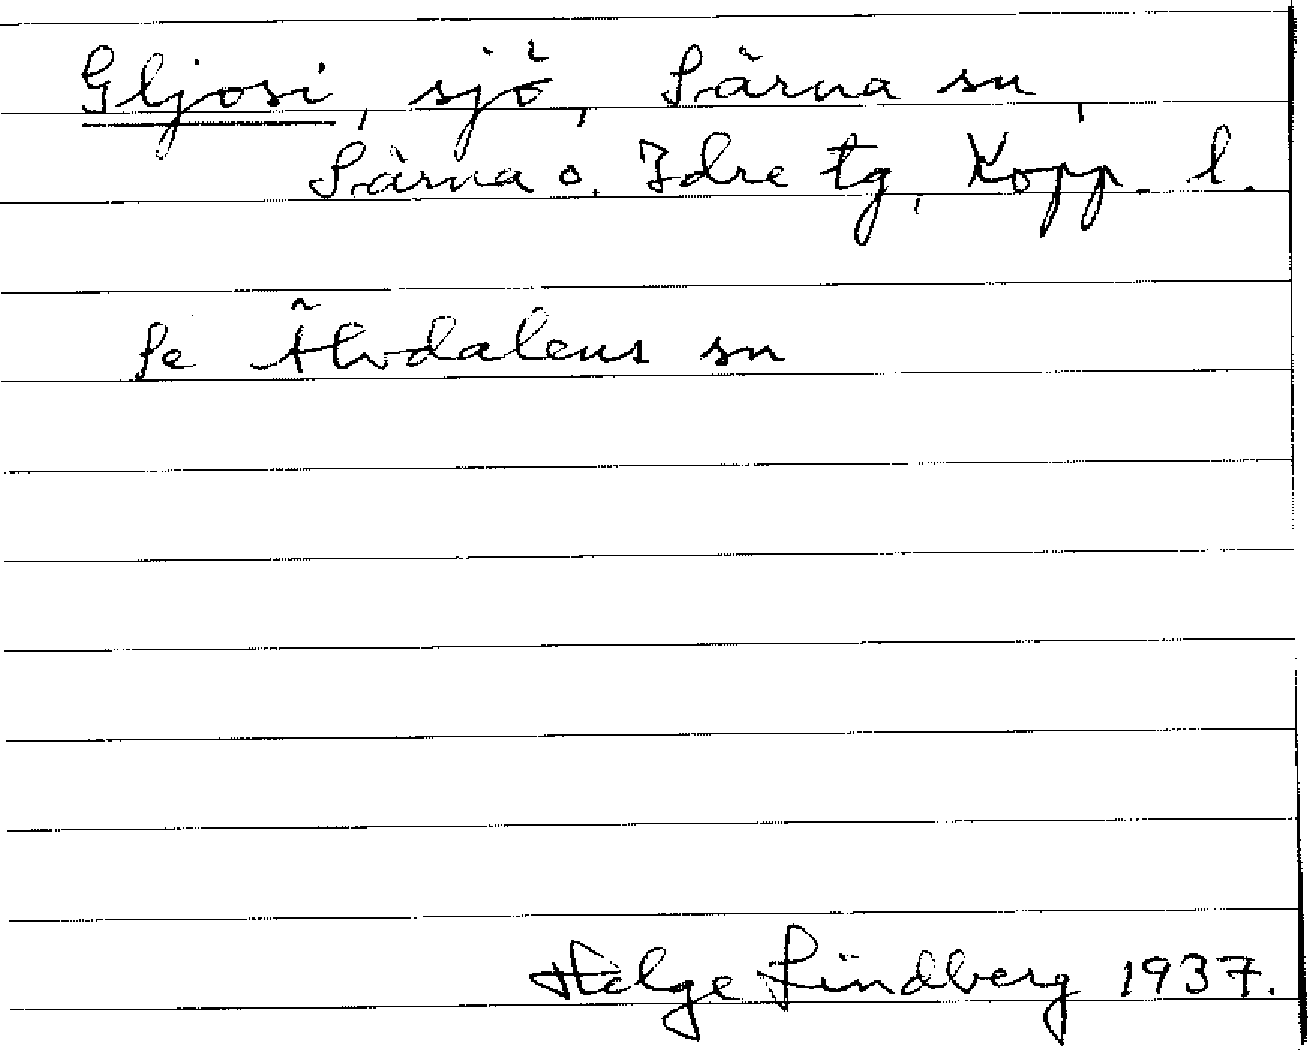 Gljosi, sjö, Särna sn,
Särna o. Idre tg, Kopp. l.
Se Älvdalens sn
Helge Lindberg 1937.